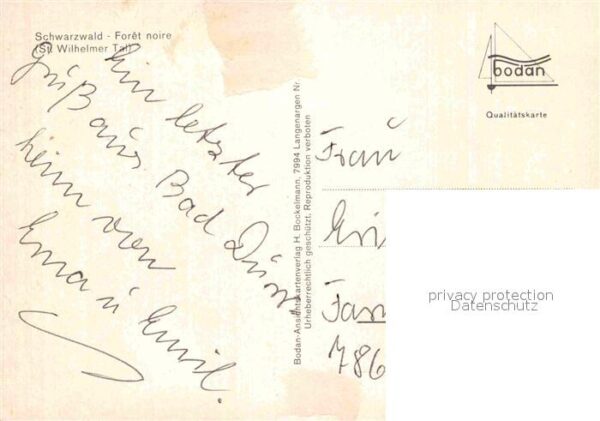 Schwarzwald - Forêt noire
(St. Wilhelmer Tal)
Ein letzter
Gruß aus Bad Dürr-
heim von
Erna u Emil.
Bodan-Ansichtskartenverlag H. Bockelmann, 7994 Langenargen Nr.
Urheberrechtlich geschützt, Reproduktion verboten
bodan
Qualitätskarte
Frau
786
privacy protection
Datenschutz